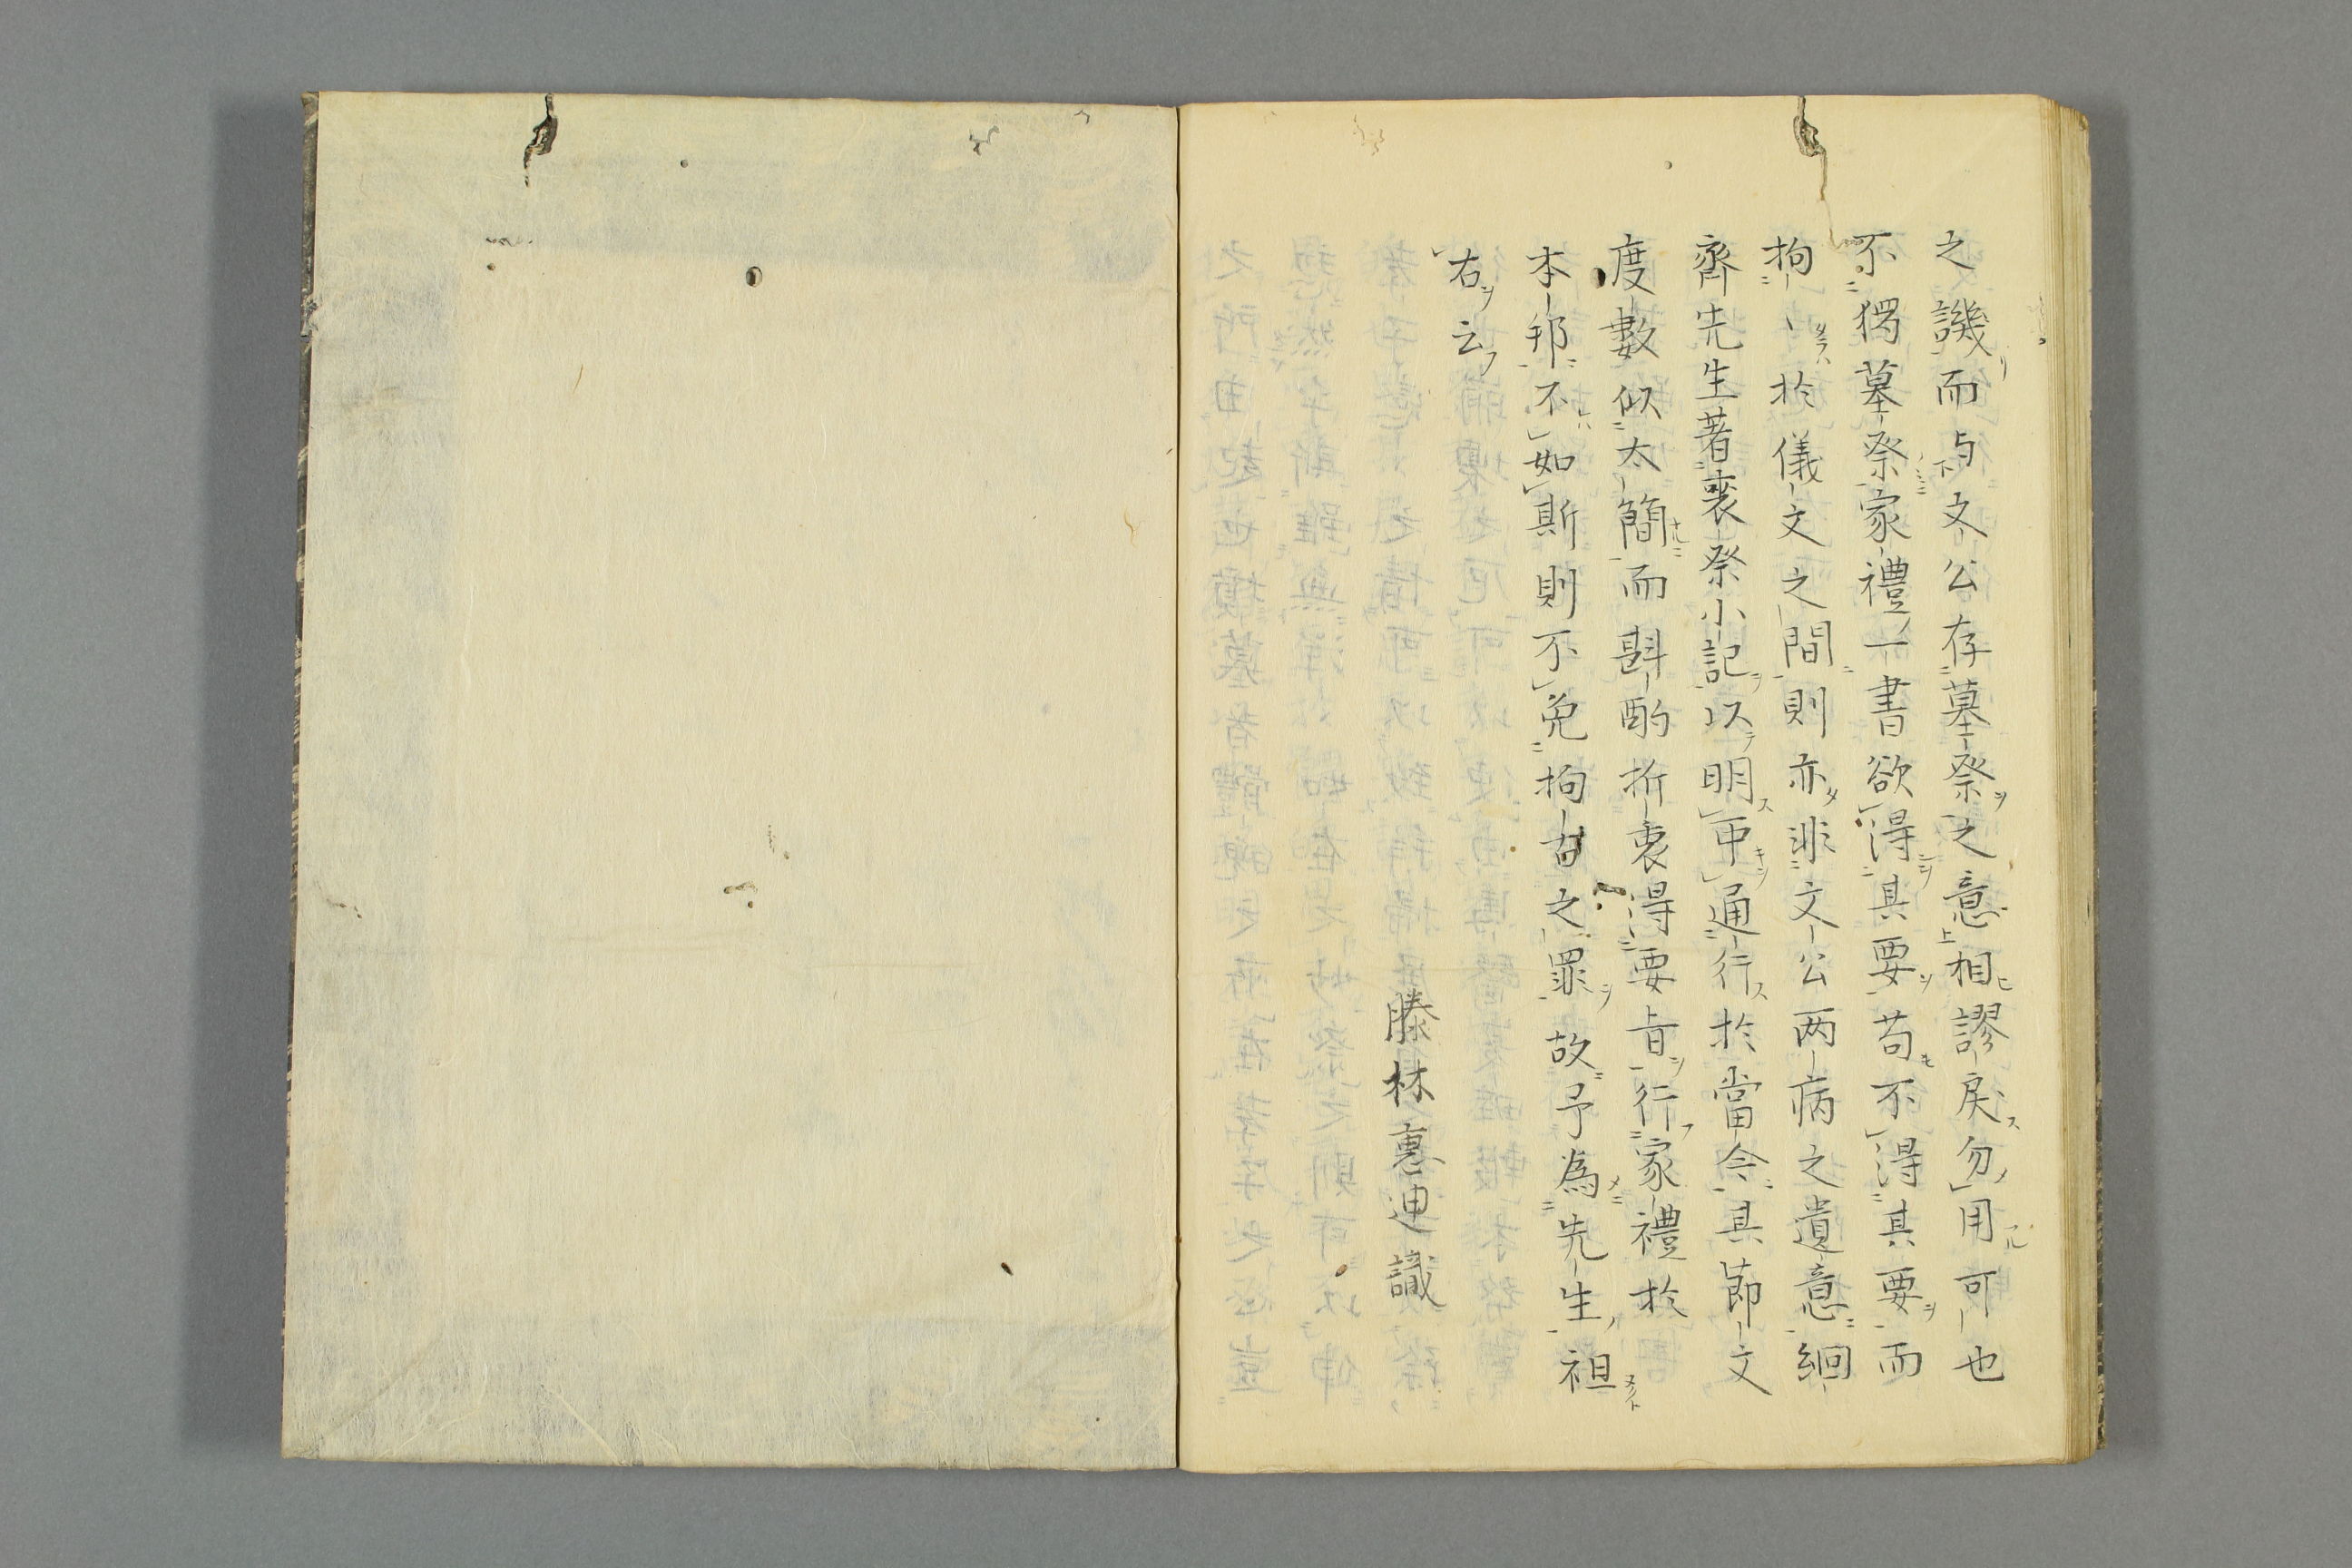 之譏而与文公存墓祭之意相謬戻勿用可也
不獨墓祭家禮一書欲得其要苟不得其要而
拘〻於儀文之間則亦非文公両病之遺意絅
齊先生著喪祭小記以明可通行於當今其節文
度數似太簡而斟酌折衷得要旨行家禮於
本邦不如斯則不免拘之罪故予為先生袒
右云
滕林惠迪識